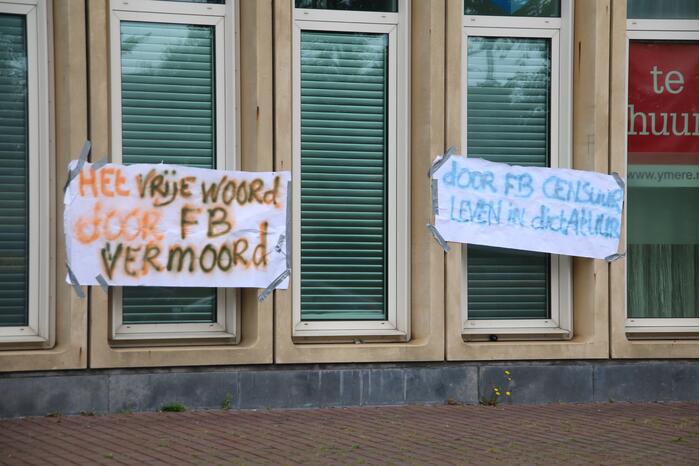 HET VRIJE WOORD
door FB
VERMOORD
door FB CENSUUR
LEVEN IN dictAtuur
te
huur
www.ymere.n